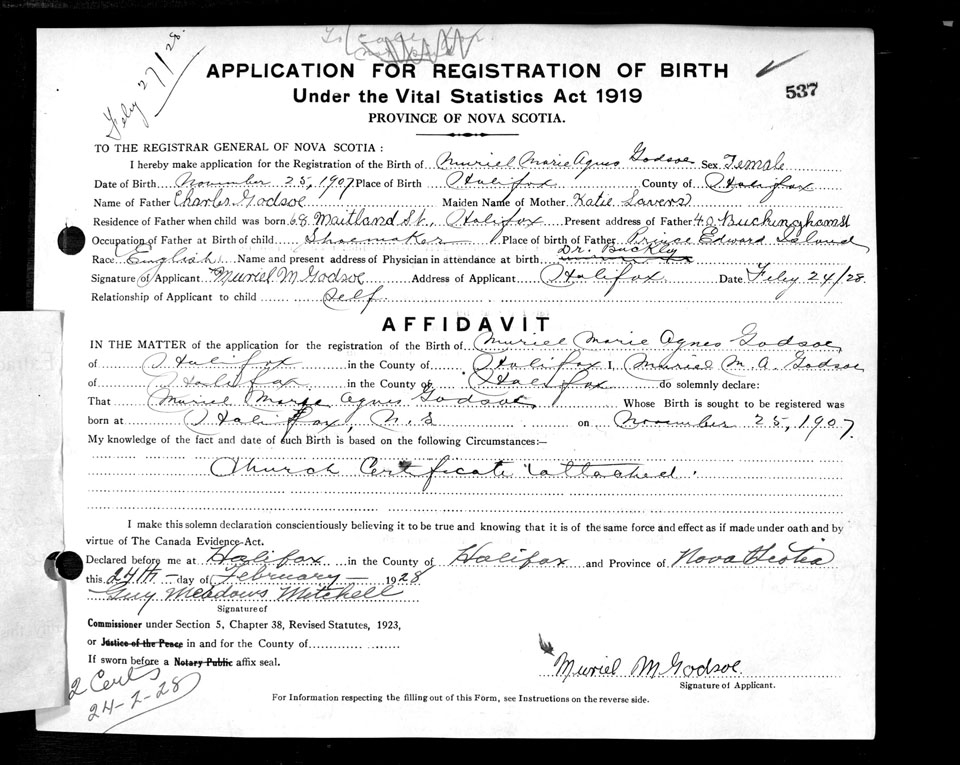 Feby 27/28.
APPLICATION FOR REGISTRATION OF BIRTH
537
Under the Vital Statistics Act 1919
PROVINCE OF NOVA SCOTIA.
TO THE REGISTRAR GENERAL OF NOVA SCOTIA:
I hereby make application for the Registration of the Birth of Muriel Marie Agnes Godsoe Sex Female
Date of Birth November 25, 1907 Place of Birth Halifax County of Halifax
Name of Father Charles Godsoe Maiden Name of Mother Katie Lavers
Residence of Father when child was born 68 Maitland St, Halifax Present address of Father 40 Buckingham St
Occupation of Father at Birth of child Shoemaker Place of birth of Father Prince Edward Island
Race English Name and present address of Physician in attendance at birth Dr. Buckley
Signature of Applicant Muriel M Godsoe Address of Applicant Halifax Date Feby 24/28.
Relationship of Applicant to child Self
AFFIDAVIT
IN THE MATTER of the application for the registration of the Birth of Muriel Marie Agnes Godsoe
of Halifax in the County of Halifax I, Muriel M. A. Godsoe
of Halifax in the County of Halifax do solemnly declare:
That Muriel Marie Agnes Godsoe Whose Birth is sought to be registered was
born at Halifax, N.S on November 25, 1907.
My knowledge of the fact and date of such Birth is based on the following Circumstances:—
Church Certificate attached.
I make this solemn declaration conscientiously believing it to be true and knowing that it is of the same force and effect as if made under oath and by
virtue of The Canada Evidence Act.
Declared before me at Halifax in the County of Halifax and Province of Nova Scotia
this 24th day of February 1928
Guy Meadows Mitchell
Signature of
Commissioner under Section 5, Chapter 38, Revised Statutes, 1923,
or Justice of the Peace in and for the County of
If sworn before a Notary Public affix seal.
Muriel M Godsoe
Signature of Applicant.
2 Certs
24-2-28
For Information respecting the filling out of this Form, see Instructions on the reverse side.